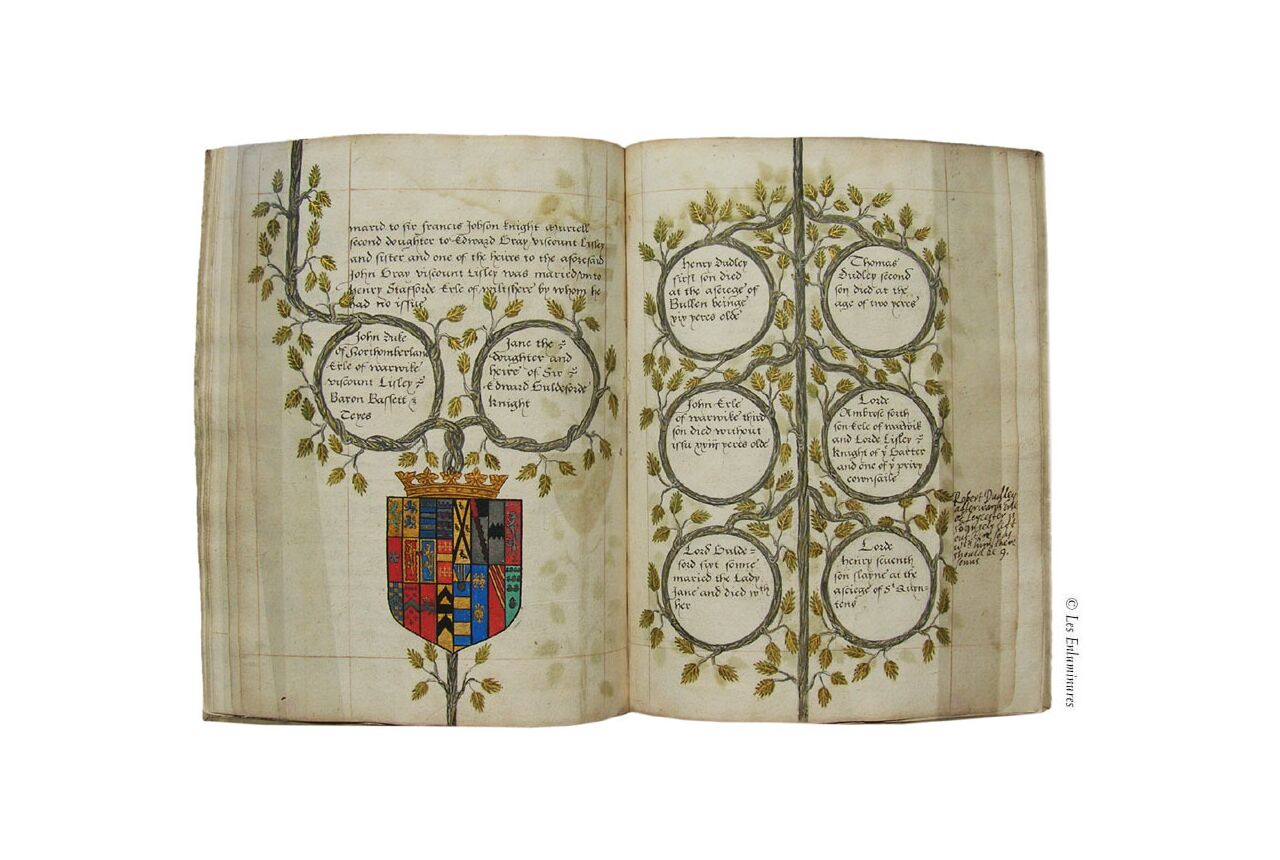 marid to sir francis Jobson knight Muriell
second doughter to Edward Gray viscount Lisley
and sister and one of the heires to the aforesaid
John Gray viscount Lisley was maried vnto
Henry Stafforde Erle of wiltshere by whom he
had no issue
John Duke
of Northomberland
Erle of warwike
viscount Lisley
Baron Bassett
Teyes
Jane the
doughter and
heire of Sir
Edward Guldeforde
knight
Henry Dudley
first son died
at the asciege of
Bullen beinge
xix yeres olde
Thomas
Dudley second
son died at the
age of two yeres
John Erle
of warwike third
son died without
issu yeres olde
Lorde
Ambrose forth
son Erle of warwik
and Lorde Lisley
knight of ye Garter
and one of ye privy
cownsaile
Lord Gulde=
ford sixt sonne
maried the Lady
Jane and died wth
her
Lorde
henry seuenth
son slayne at the
asciege of St Quyn=
tens
Robert Dudley
afterwards Erle
of Leycester is
left
out
wth him there
should be 9.
sonns
© Les Enluminures